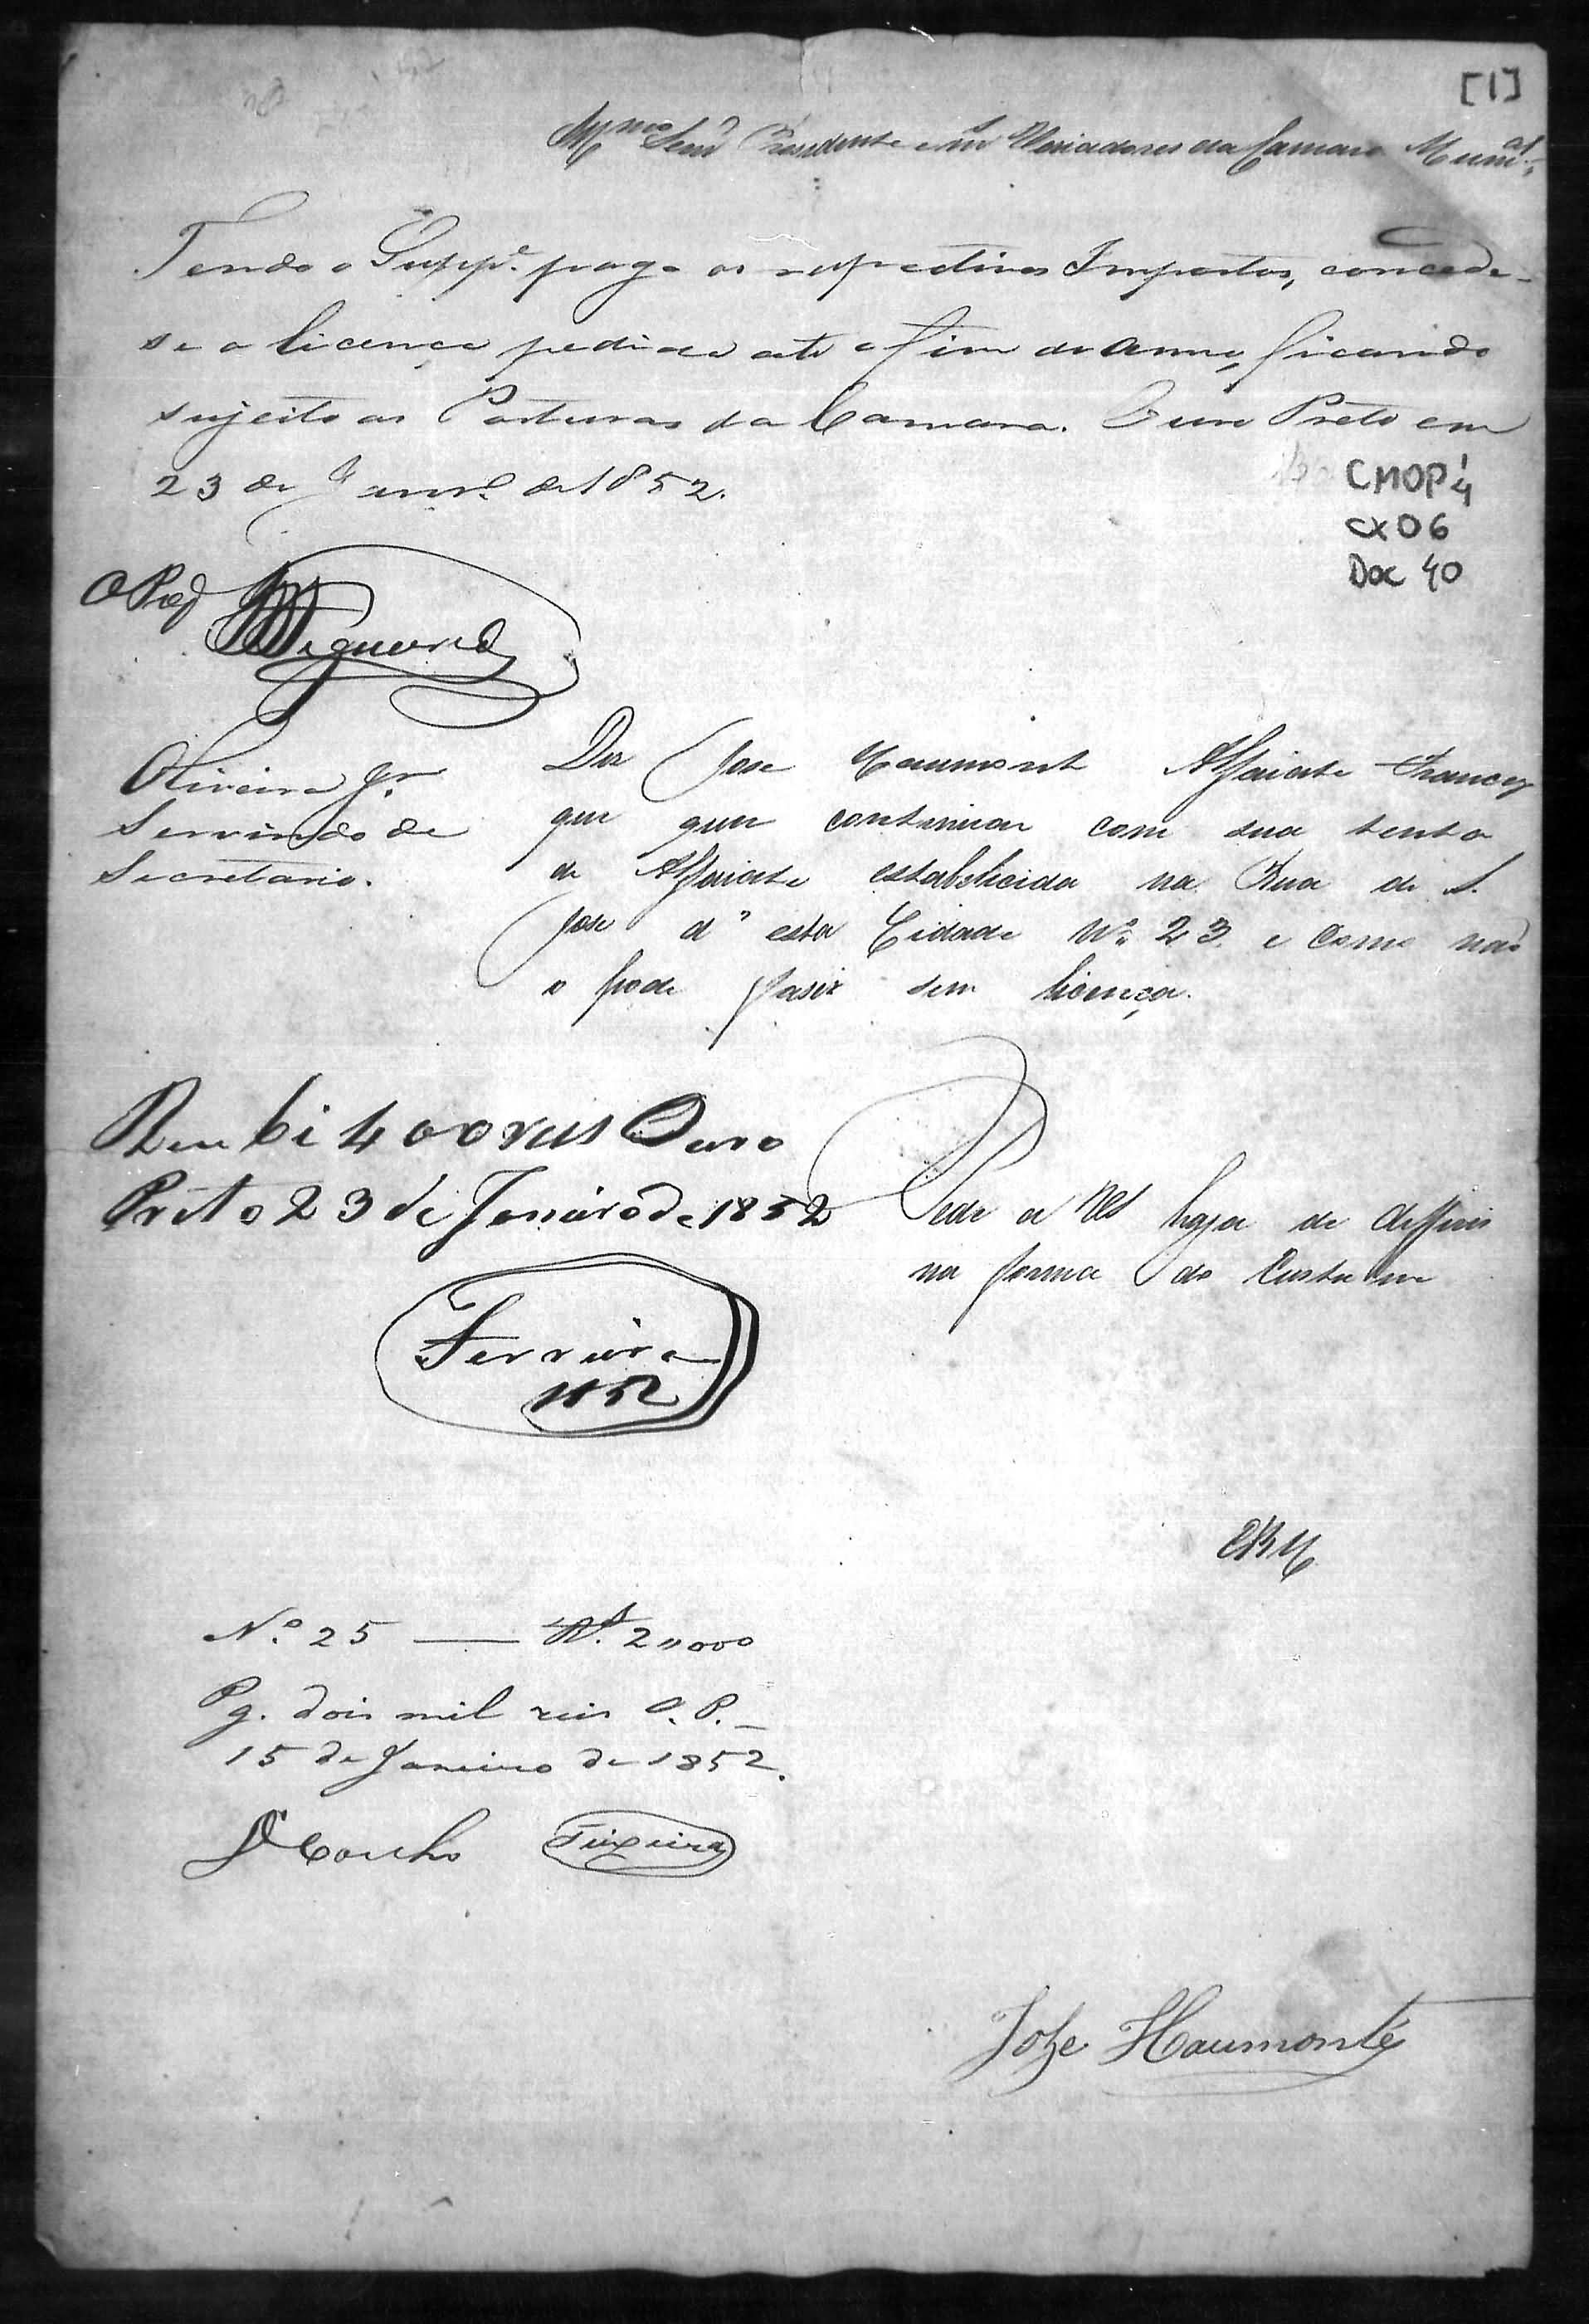 [1]
Senr Presidente e Veriadores da Camara Munal.
Tendo o Suppe. pago os respectivos Impostos, concede-
se a licença pedida até o fim do anno, ficando
sujeito as Posturas da Camara. Ouro Preto em
23 de Janro. de 1852.
CMOP 1/4
cx 06
Doc 40
O
Oliveira Jr.
Servindo de
Secretario.
Diz Jose Haumont Alfaiate Francez
que quer continuar com sua tenda
de Alfaiate establicida na Rua de S.
Jose d'esta Cidade No. 23 e como não
o pode faser sem licença.
Recebi 400 reis Ouro
Preto 23 de Janeiro de 1852
Pede a VS haja de deffirir
na forma do Custume
Ferreira
1852
ERM
No. 25 — Rs. 2,,000
Pg. dois mil reis O. P. —
15 de Janeiro de 1852.
Coelho Teixeira
Joze Haumonté